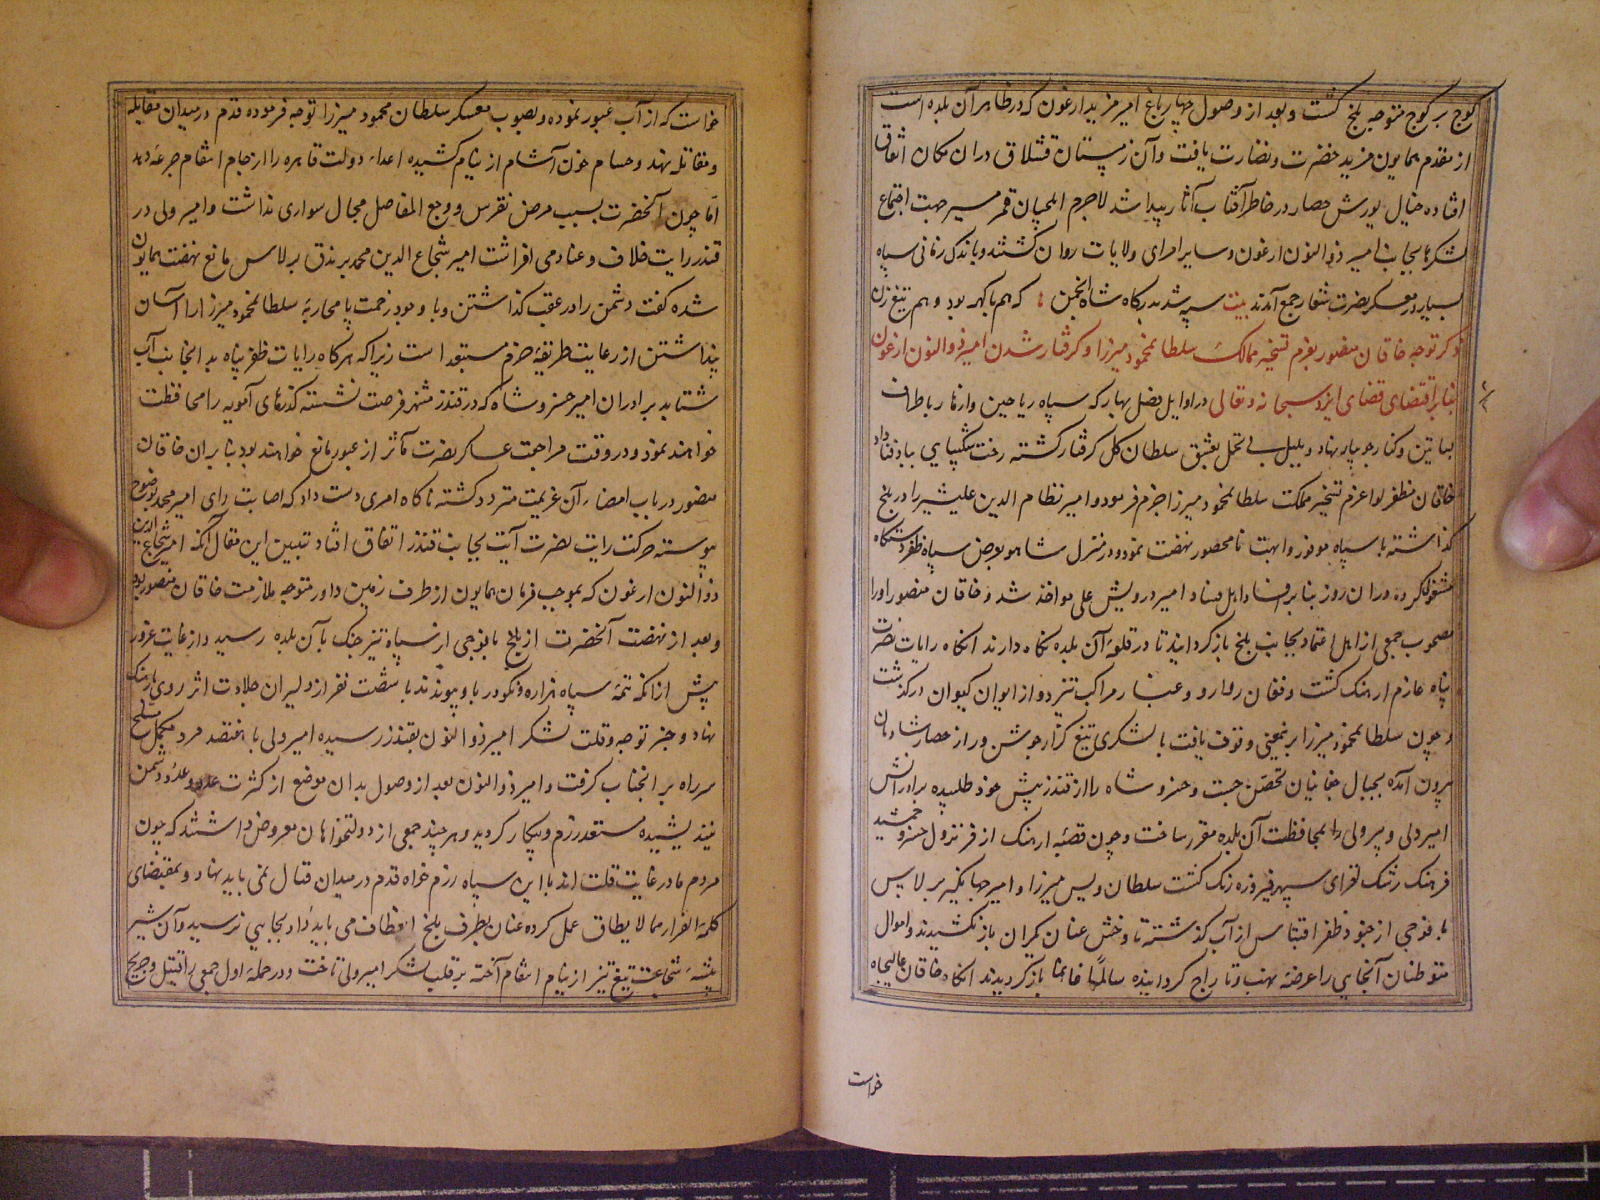 کوچ بر کوچ متوجه بلخ گشت و بعد از وصول چهارباغ امیر مزید ارغون که در ظاهر آن بلده است
از مقدم همایون مزید خضرت و نضارت یافت و آن زمستان قشلاق در ان مکان اتفاق
افتاده خیال یورش حصار در خاطر آفتاب آثار پیدا شد لاجرم ایلچیان قمر مسیر جهت اجتماع
لشکرها بجانب امیر ذوالنون ارغون و سایر امرای ولایات روان گشتند و باندک زمانی سپاه
بسیار در معسکر نصرت شعار جمع آمدند بیت سپه شد بدرگاه شاه انجمن که هم با گهر بود و هم تیغ زن
ذکر توجه خاقان منصور بعزم تسخیر ممالک سلطانمحمود میرزا و گرفتار شدن امیر ذوالنون ارغون
بنابر اقتضای قضای ایزد سبحانه و تعالی در اوایل فصل بهار که سپاه ریاحین و ازهار باطراف
بساتین و کنار جویبار نهاد و بلبل بی تحمل بعشق سلطان گل گرفتار گشته رخت شکیبایی بباد فنا داد
خاقان مظفر لوا عزم تسخیر مملکت سلطانمحمود میرزا جزم فرمود و امیر نظام الدین علیشیر را در بلخ
گذاشته با سپاه موفور و ابهت نامحصور نهضت نمود و در منزل شاهو بعرض سپاه ظفر دستگاه
مشغولی کرده در ان روز بنابر افساد اهل فساد امیر درویش علی مواخذ شد و خاقان منصور او را
مصحوب جمعی از اهل اعتماد بجانب بلخ باز گردانید تا در قلعه آن بلده نگاه دارند آنگاه رایات نصرت
پناه عازم ارهنگ گشت و فغان روارو و غبار مراکب تیزرو از ایوان کیوان درگذشت
و چون سلطانمحمود میرزا برینمعنی وقوف یافت با لشکری تیغ گزار جوشن ور از حصار شادمان
بیرون آمده بجبال چغانیان تحصن جست و خسرو شاه را از قندز پیش خود طلبیده برادرانش
امیر ولی و پیر ولی را بمحافظت آن بلده مقرر ساخت و چون قصبه ارهنگ از فر نزول خسرو جمشید
فرهنگ رشک افزای سپهر فیروزه رنگ گشت سلطان ویس میرزا و امیر جهانگیر برلاس
با فوجی از جنود ظفر اقتباس از آب گذشته تا وخش عنان یکران باز نکشیدند و اموال
متوطنان آنجای را عرضه نهب و تاراج گردانیده سالما غانما باز گردیدند آنگاه خاقان عالیجاه
خواست
خواست که از آب عبور نموده و بصوب معسکر سلطان محمود میرزا توجه فرموده قدم در میدان مقابله
و مقاتله نهد و حسام خون آشام از نیام کشیده اعداء دولت قاهره را از جام انتقام جرعه دهد
اما چون آنحضرت بسبب مرض نقرس و وجع المفاصل مجال سواری نداشت و امیر ولی در
قندز رایت خلاف و عناد می افراشت امیر شجاع الدین محمد برندق برلاس مانع نهضت همایون
شده گفت دشمن را در عقب گذاشتن و با وجود زحمت پا محاربه سلطانمحمود میرزا را آسان
پنداشتن از رعایت طریقه حزم مستبعد است زیرا که هرگاه رایات ظفر پناه بدانجانب آب
شتابد برادران امیر خسرو شاه که در قندز منتهز فرصت نشسته گذرهای آمویه را محافظت
خواهند نمود و در وقت مراجعت عساکر نصرت مآثر از عبور مانع خواهند بود بنابران خاقان
منصور در باب امضاء آن عزیمت متردد گشته ناگاه امری دست داد که اصابت رای امیر محمد بوضوح
پیوسته حرکت رایت نصرت آیت بجانب قندز اتفاق افتاد تبیین این مقال آنکه امیر شجاع الدین
ذوالنون ارغون که بموجب فرمان همایون از طرف زمین داور متوجه ملازمت خاقان منصور بود
و بعد از نهضت آنحضرت از بلخ با فوجی از سپاه تیز جنگ بآن بلده رسید و از غایت غرور
پیش از آنکه تتمه سپاه هزاره و نکودر باو پیوندند با شصت نفر از دلیران جلادت اثر روی بارهنگ
نهاد و خبر توجه و قلت لشکر امیر ذوالنون بقندز رسیده امیر ولی با هفتصد مرد مکمل مسلح
سر راه بر آنجناب گرفت و امیر ذوالنون بعد از وصول بدان موضع از کثرت عدد و عدد دشمن
نیندیشیده مستعد رزم و پیکار گردید و هر چند جمعی از دولتخواهان معروض داشتند که چون
مردم ما در غایت قلت اند با این سپاه رزم خواه قدم در میدان قتال نمی باید نهاد و بمقتضای
کلمه الفرار مما لا یطاق عمل کرده عنان بطرف بلخ انعطاف می باید داد بجایی نرسید و آن شیر
بیشه شجاعت تیغ تیز از نیام انتقام آخته بر قلب لشکر امیر ولی تاخت و در حمله اول جمعی را قتیل و جریح